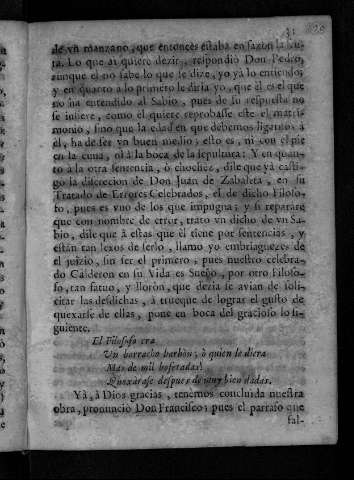 de vn manzano, que entonces estaba en sazon la fru-
ta. Lo que ai quiere dezir, respondiò Don Pedro,
aunque el no sabe lo que se dize, yo yà lo entiendo;
y en quanto a lo primero le diria yo, que èl es el que
no ha entendido al Sabio, pues de su respuesta no
se infiere, como èl quiere reprobasse este el matri-
monio, sino que la edad en que debemos ligarnos à
èl, ha de ser vn buen medio; esto es, ni con el pie
en la cuna, ni à la boca de la sepultura: Y en quan-
to à la otra sentencia, ò chochez, dile que yà casti-
gò la discrecion de Don Juan de Zabaleta, en su
Tratado de Errores Celebrados, el de dicho Filoso-
fo, pues es vno de los que impugna; y si reparare
que con nombre de error, tratò vn dicho de vn Sa-
bio, dile que à estas que èl tiene por sentencias, y
estàn tan lexos de serlo, llamo yo embriaguezes de
el juizio, sin ser el primero; pues nuestro celebra-
do Calderon en su Vida es Sueño, por otro Filoso-
fo, tan fatuo, y lloròn, que dezia se avian de soli-
citar las desdichas, à trueque de lograr el gusto de
quexarse de ellas, pone en boca del gracioso lo si-
guiente.
El Filosofo era
Vn borracho barbòn; ò quien le diera
Mas de mil bofetadas!
Quexarase despues de muy bien dadas.
Yà, à Dios gracias, tenemos concluida nuestra
obra, pronunciò Don Francisco; pues el parrafo que
fal-